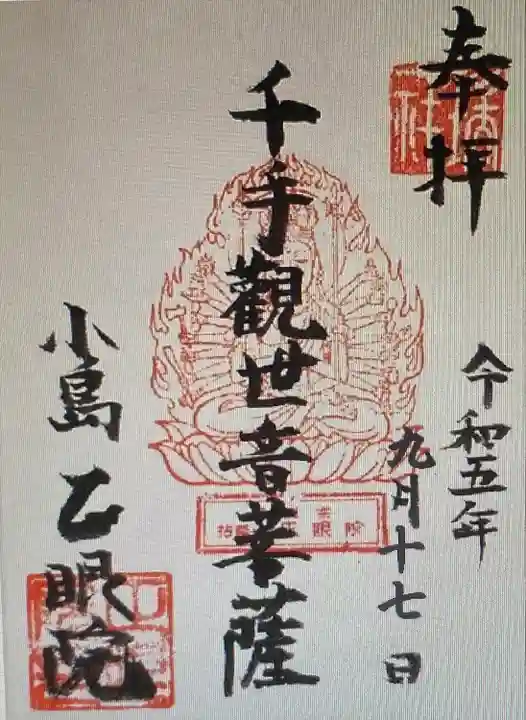 奉拝
令和五年
九月十七日
千手觀世音菩薩
小島乙眼院